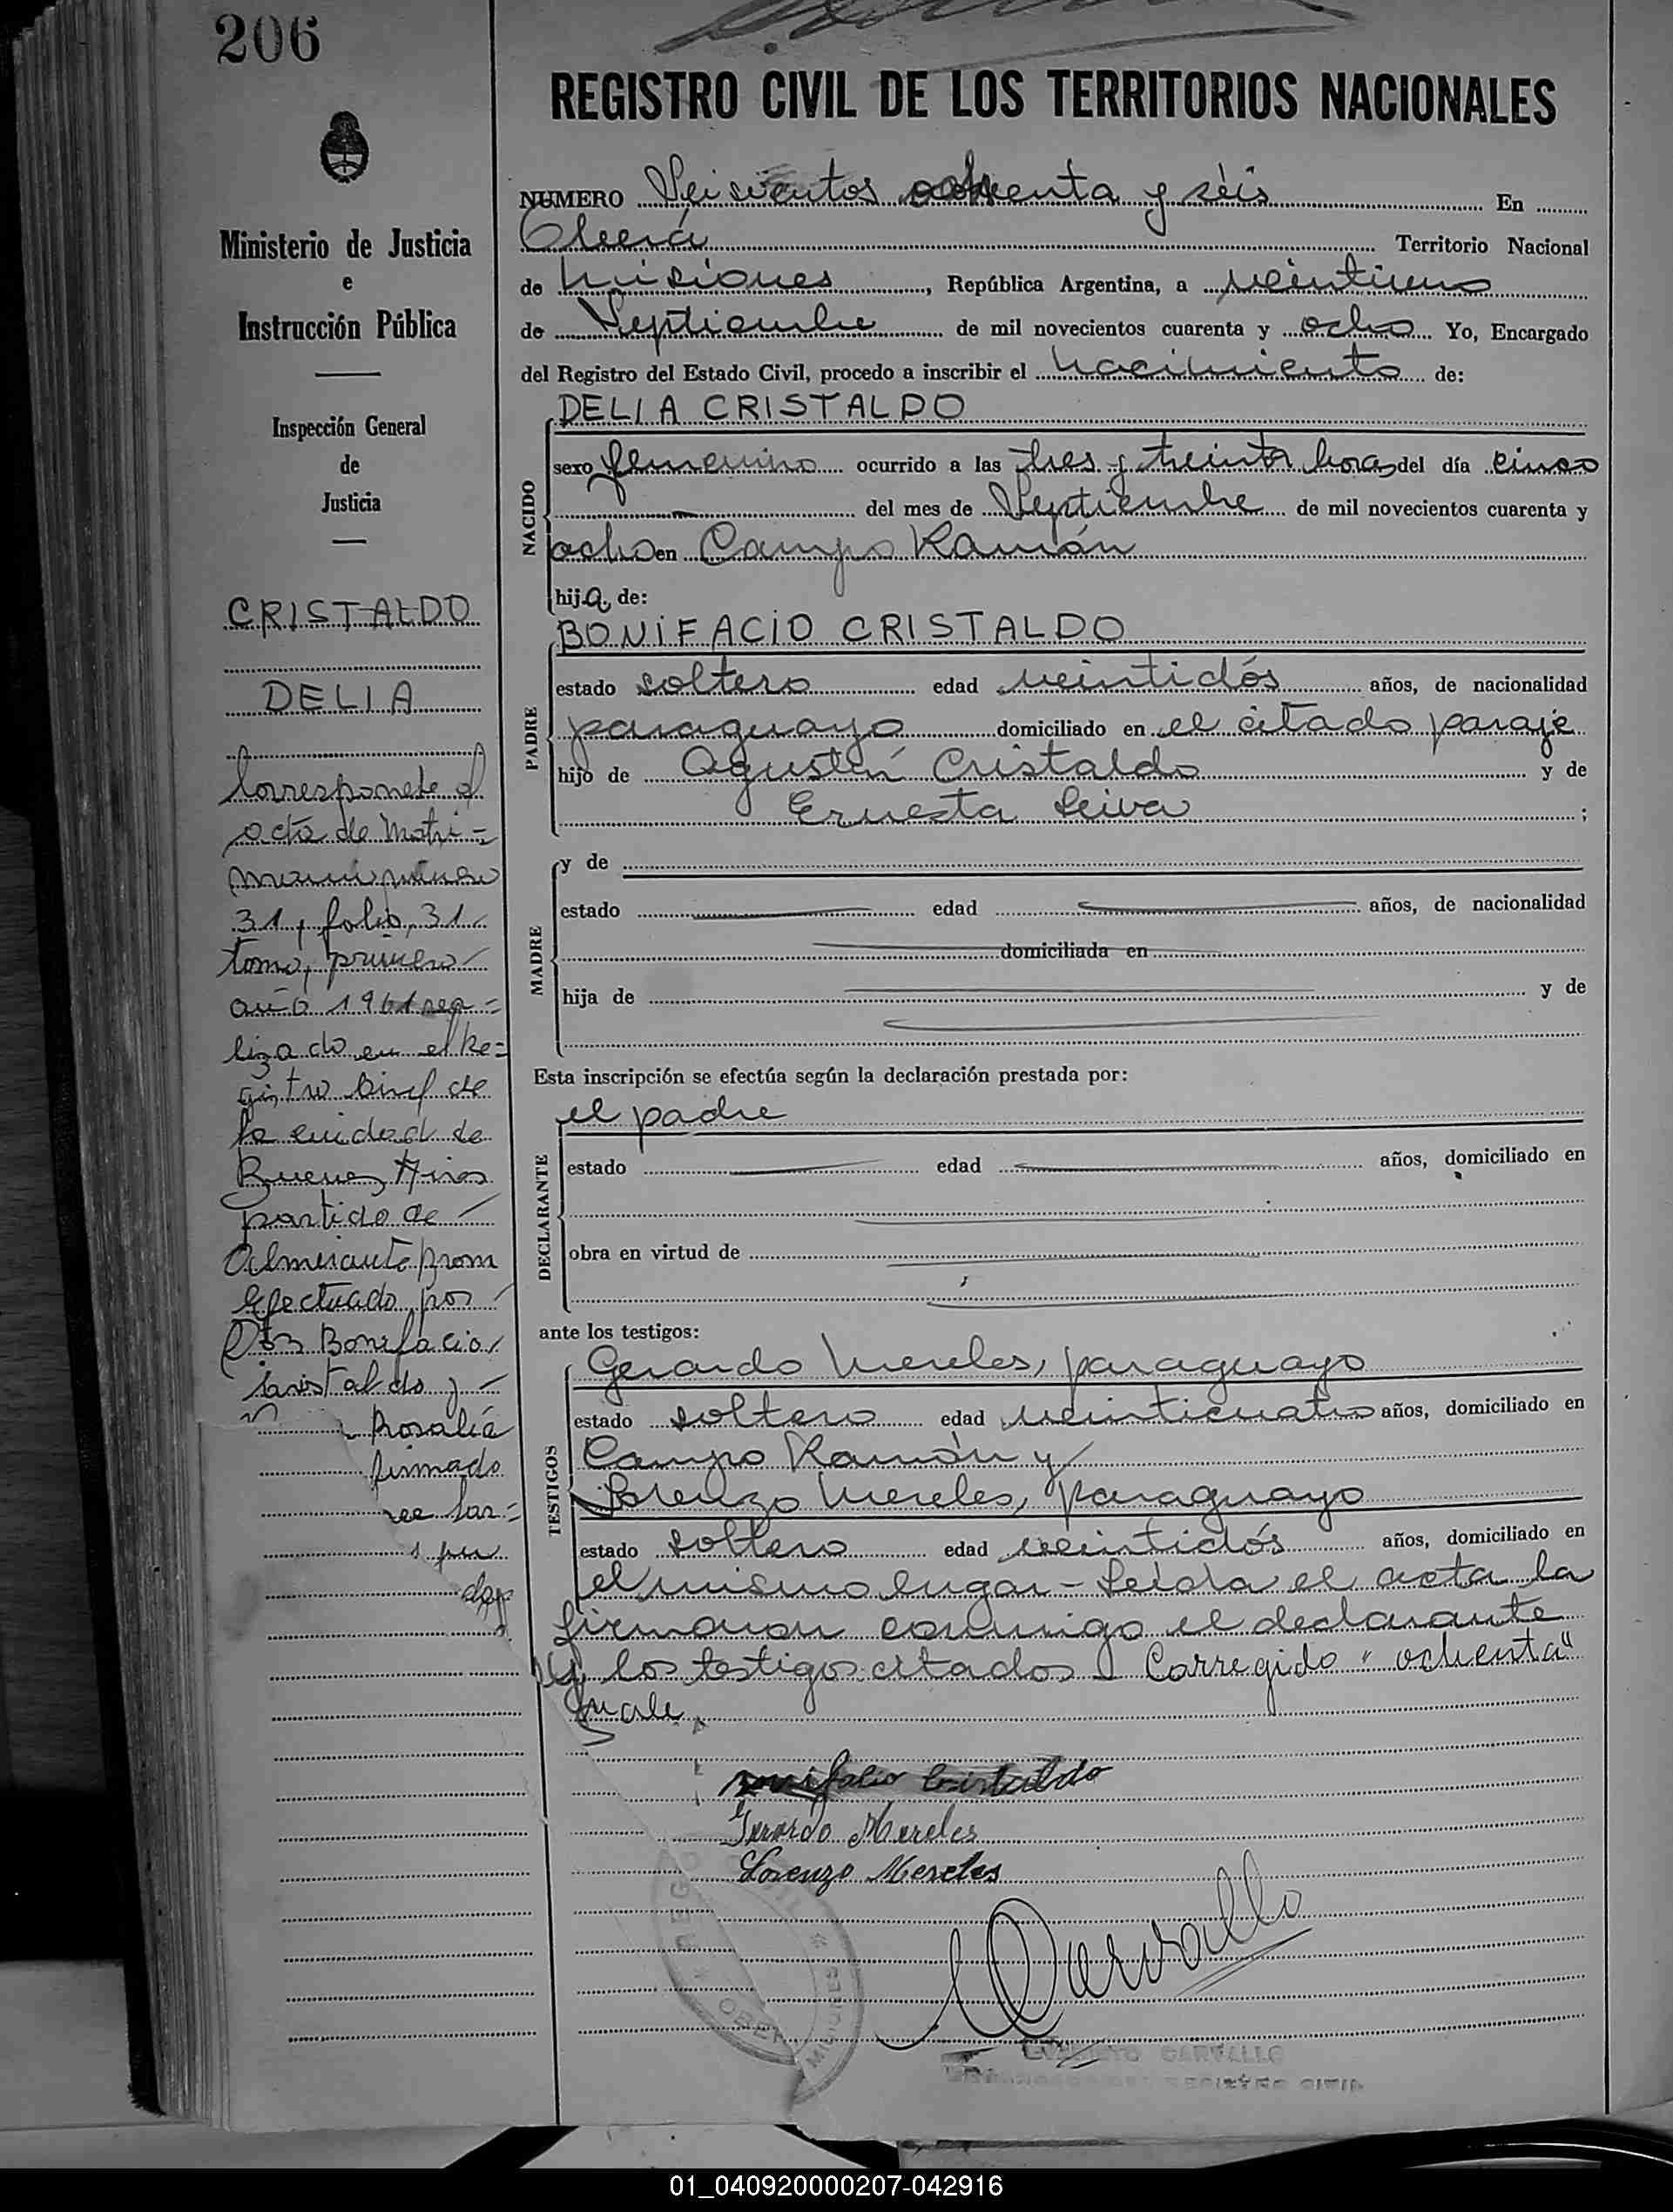 206
REGISTRO CIVIL DE LOS TERRITORIOS NACIONALES
Ministerio de Justicia
e
Instrucción Pública
Inspección General
de
Justicia
CRISTALDO
DELIA
Corresponde al
acta de Matri=
31, folio, 31
tomo, primero
año 1961 rea=
lizado en el Re=
gistro Civil de
la ciudad de
Buenos Aires
partido de
Almirante Brom
efectuado por
Bonifacio
Cristaldo y
Rosalía
firmado
NUMERO Seiscientos ochenta y séis En
Oberá Territorio Nacional
de Misiones, República Argentina, a veintiuno
de Septiembre de mil novecientos cuarenta y ocho Yo, Encargado
del Registro del Estado Civil, procedo a inscribir el nacimiento de:
NACIDO
DELIA CRISTALDO
sexo femenino ocurrido a las tres y treinta horas del día cinco
del mes de Septiembre de mil novecientos cuarenta y
ocho en Campo Ramón
hija de:
PADRE
BONIFACIO CRISTALDO
estado soltero edad veintidós años, de nacionalidad
paraguayo domiciliado en el citado paraje
hijo de Agustín Cristaldo y de
Ernesta Leiva ;
MADRE
y de
estado edad años, de nacionalidad
domiciliada en
hija de y de
Esta inscripción se efectúa según la declaración prestada por:
DECLARANTE
el padre
estado edad años, domiciliado en
obra en virtud de
ante los testigos:
TESTIGOS
Gerardo Mereles, paraguayo
estado soltero edad veinticuatro años, domiciliado en
Campo Ramón y
Lorenzo Mereles, paraguayo
estado soltero edad veintidós años, domiciliado en
el mismo lugar - Leída el acta la
firmaron conmigo el declarante
y los testigos citados - Corregido "ochenta"
vale
Bonifacio Cristaldo
Gerardo Mereles
Lorenzo Mereles
Carvallo
CARVALLO
REGISTRO CIVIL
01_040920000207-042916